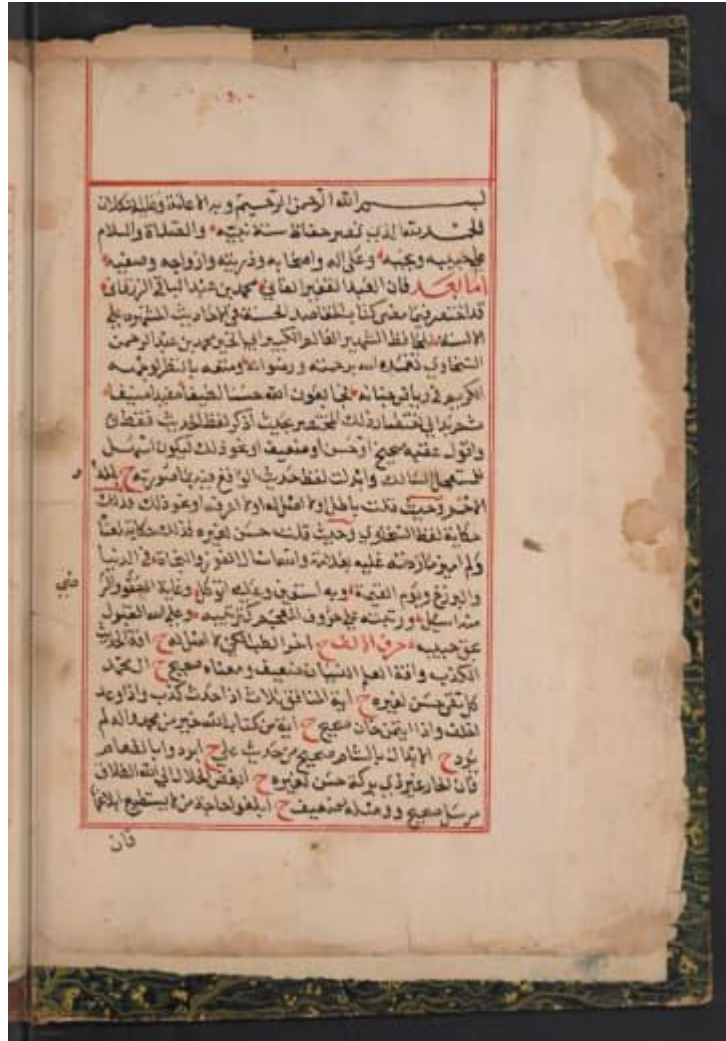 بسم الله الرحمن الرحيم وبه الاعانة وعليه التكلان
الحمد لله الذي نصر حفاظ سنة نبيه والصلاة والسلام
على حبيبه ونجيه وعلى اله واصحابه وذريته وازواجه وصفيه
اما بعد فان العبد الفقير الفاني محمد بن عبد الباقي الزرقاني
قد اختصر فيما مضى كتاب المقاصد الحسنة في الاحاديث المشتهرة على
الالسنة للحافظ الشهير العالم الكبير ابي الخير محمد بن عبد الرحمن
السخاوي تغمده الله برحمته ورضوانه ومتعه بالنظر لوجهه
الكريم في رياض جنانه فجا بعون الله حسنا لطيفا مفيدا منيفا
ثم بدا لي اختصار ذلك المختصر بحيث اذكر لفظ الحديث فقط
واقول عقبه صحيح او حسن او ضعيف او نحو ذلك ليكون اسهل
للمستعجل السالك وابدلت لفظ حديث الواقع فيه بما صورته ح بالمداد
الاحمر وحيث قلت باطل او لا اصل له او لا اعرفه او نحو ذلك فذلك
حكاية لفظ السخاوي وحيث قلت حسن لغيره فذلك حكاية لمعناه
ولم اميز ما زدته عليه بعلامة والله اسال الفوز والنجاة في الدنيا
والبرزخ ويوم القيمة وبه استعين وعليه اتوكل وغاية العفو والرضى
منه اسيل ورتبته على حروف المعجم كترتيبه وعلى الله القبول
بحق حبيبه حرف الالف ح اخر الطب الكي لا اصل له ح افة الحديث
الكذب وافة العلم النسيان ضعيف ومعناه صحيح ح ال محمد
كل تقي حسن لغيره ح اية المنافق ثلاث اذا حدث كذب واذا وعد
اخلف واذا ايتمن خان صحيح ح اية من كتاب الله خير من محمد واله لم
يرد ح الابدال بالشام صحيح من حديث علي ح ابردوا بالطعام
فان الحار غير ذي بركة حسن لغيره ح ابغض الحلال الى الله الطلاق
مرسل صحيح ووصله ضعيف ح ابلغوا حاجة من لا يستطيع ابلاغها
فان